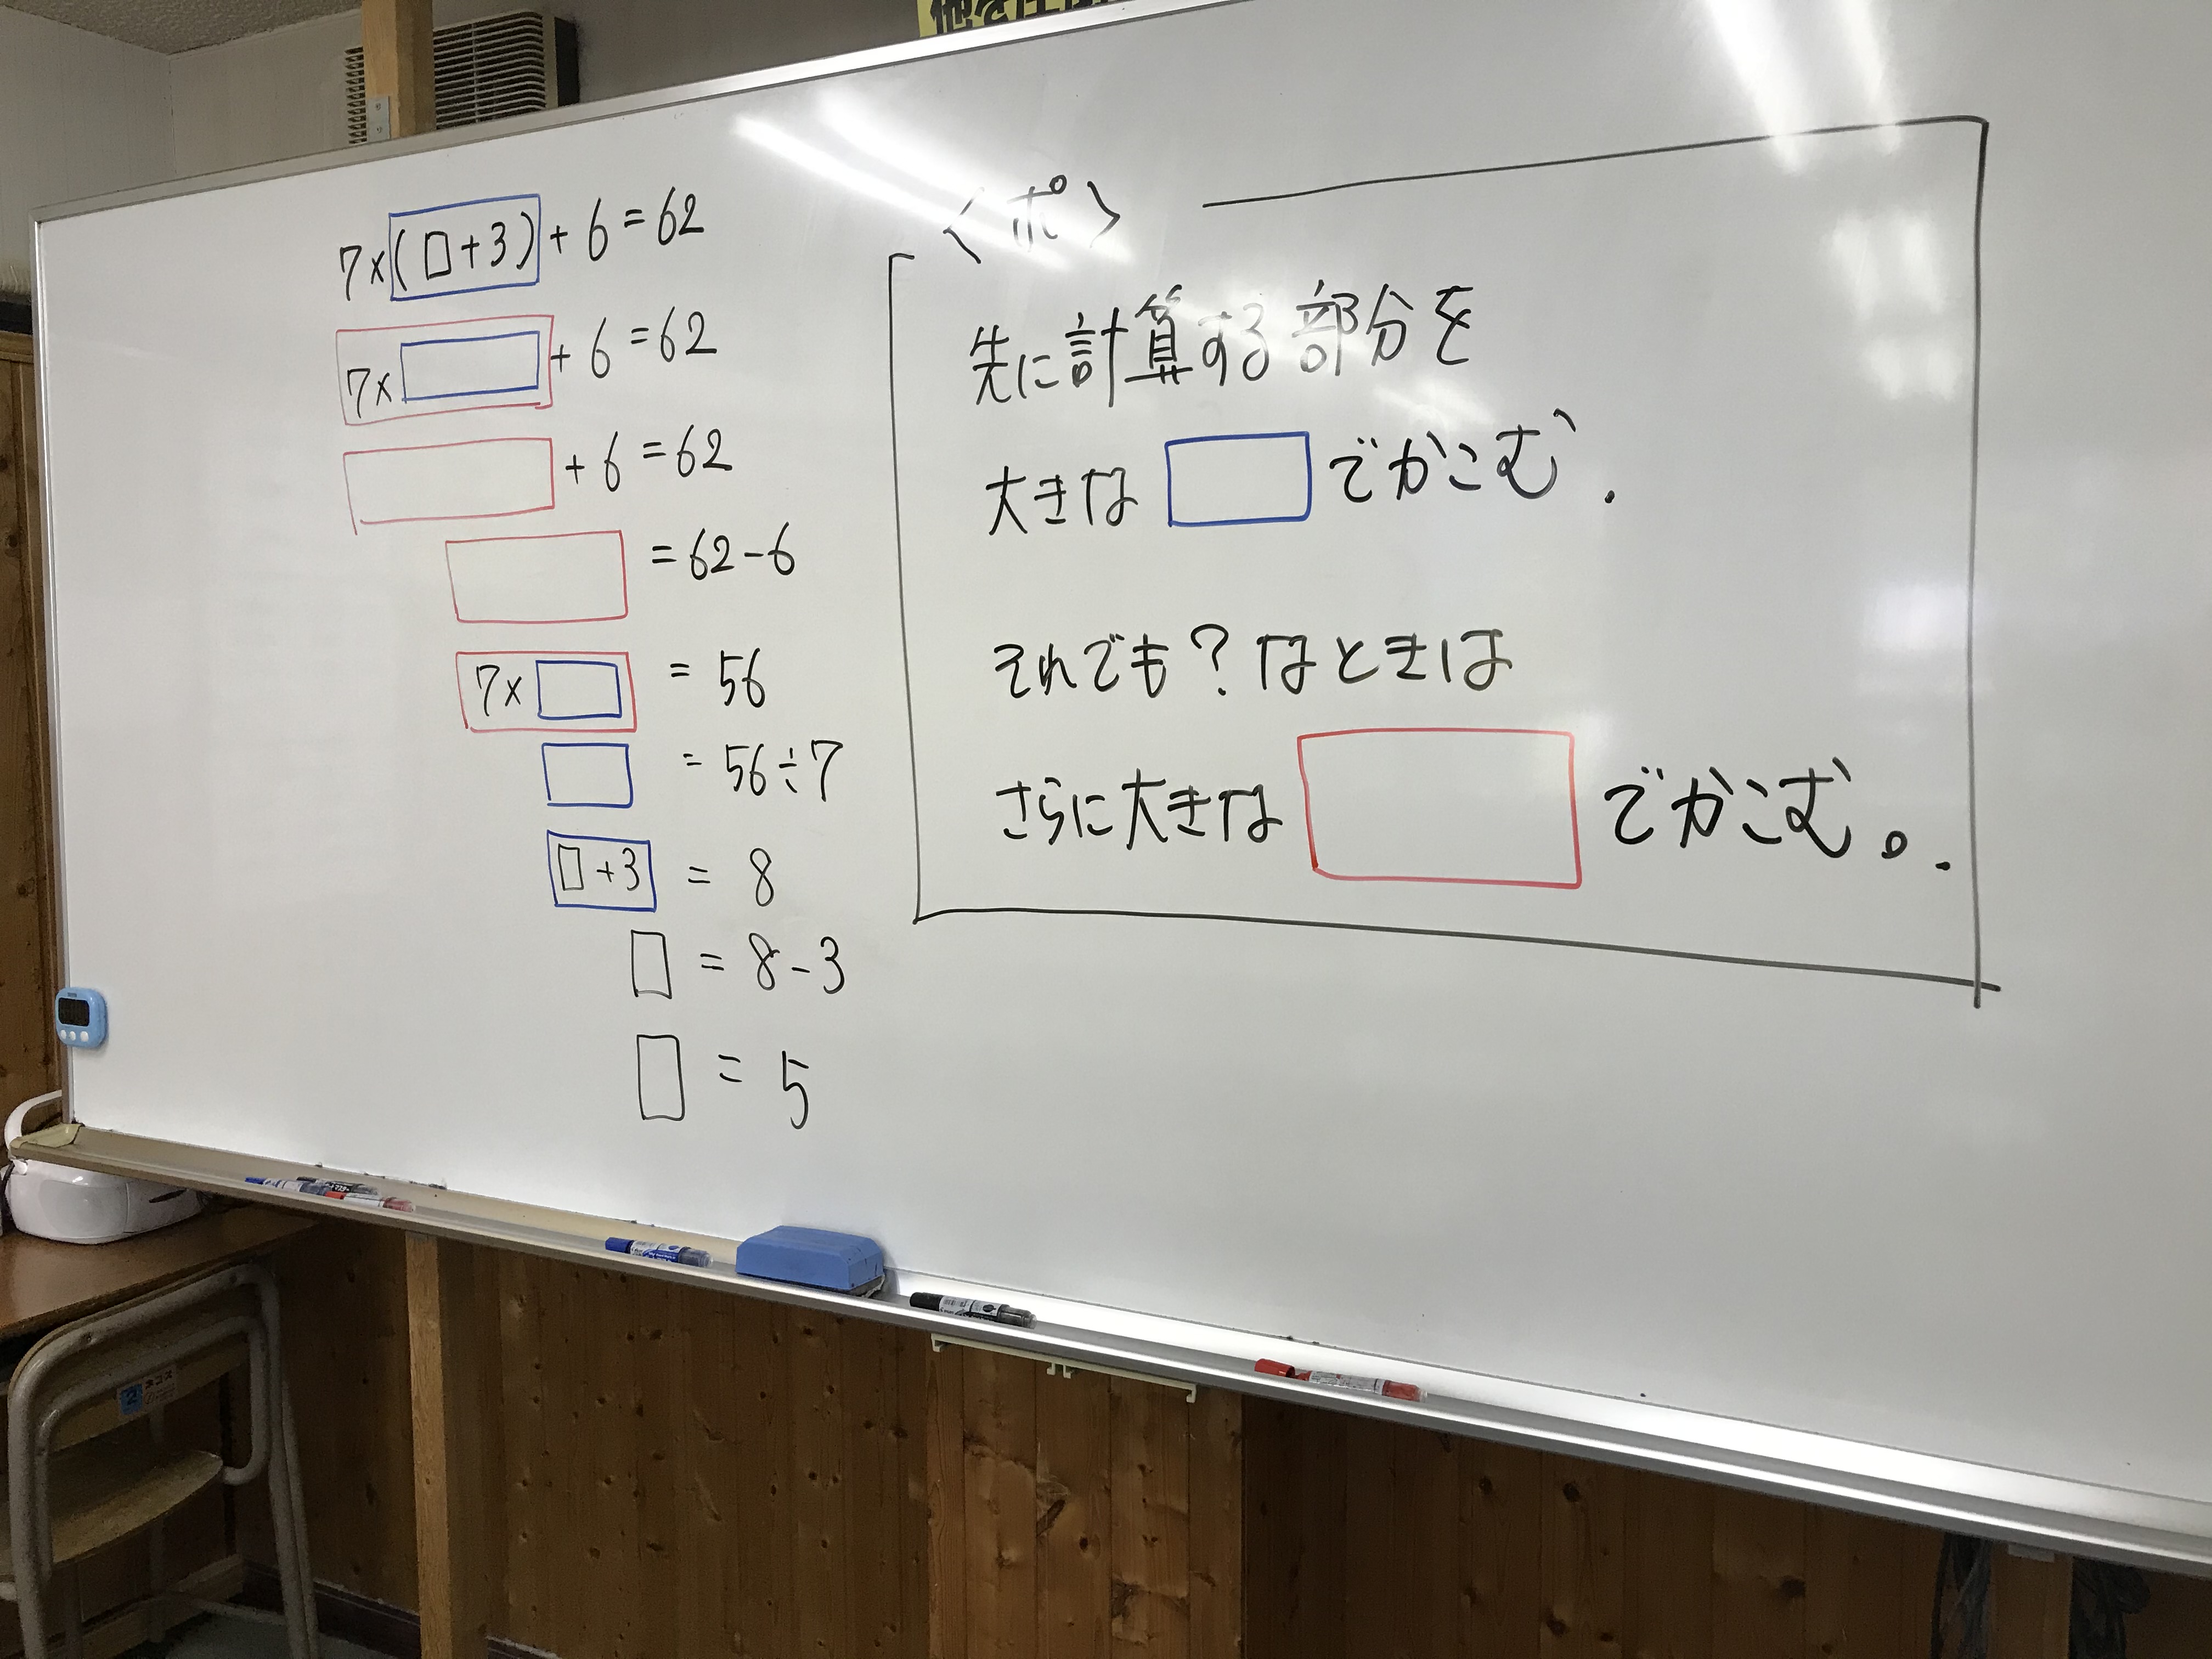 7×(□+3)+6=62
7×□+6=62
□+6=62
□=62-6
7×□=56
□=56÷7
□+3=8
□=8-3
□=5
〈ポ〉
先に計算する部分を
大きな□でかこむ.
それでも?なときは
さらに大きな□でかこむ。.